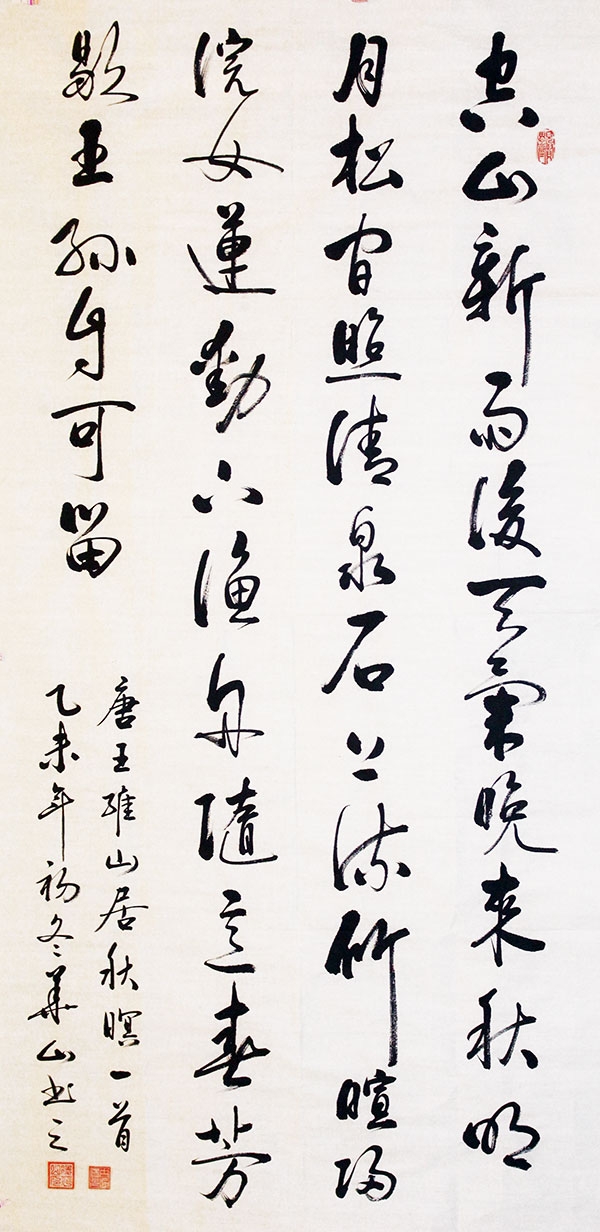 空山新雨後天氣晚來秋明
月松間照清泉石上流竹喧歸
浣女蓮動下漁舟隨意春芳
歇王孫自可留
唐王維山居秋暝一首
乙未年初冬華山書之